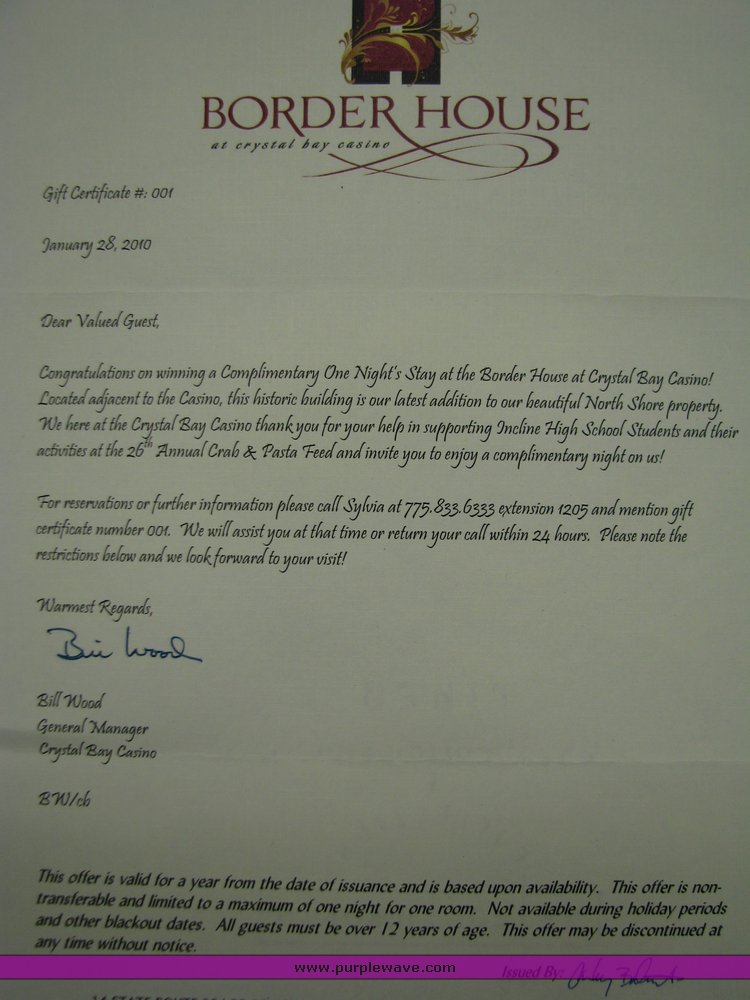 BORDER HOUSE
at crystal bay casino
Gift Certificate #: 001
January 28, 2010
Dear Valued Guest,
Congratulations on winning a Complimentary One Night's Stay at the Border House at Crystal Bay Casino!
Located adjacent to the Casino, this historic building is our latest addition to our beautiful North Shore property.
We here at the Crystal Bay Casino thank you for your help in supporting Incline High School Students and their
activities at the 26th Annual Crab & Pasta Feed and invite you to enjoy a complimentary night on us!
For reservations or further information please call Sylvia at 775.833.6333 extension 1205 and mention gift
certificate number 001. We will assist you at that time or return your call within 24 hours. Please note the
restrictions below and we look forward to your visit!
Warmest Regards,
Bill Wood
Bill Wood
General Manager
Crystal Bay Casino
BW/cb
This offer is valid for a year from the date of issuance and is based upon availability. This offer is non-
transferable and limited to a maximum of one night for one room. Not available during holiday periods
and other blackout dates. All guests must be over 12 years of age. This offer may be discontinued at
any time without notice.
www.purplewave.com
Issued By: